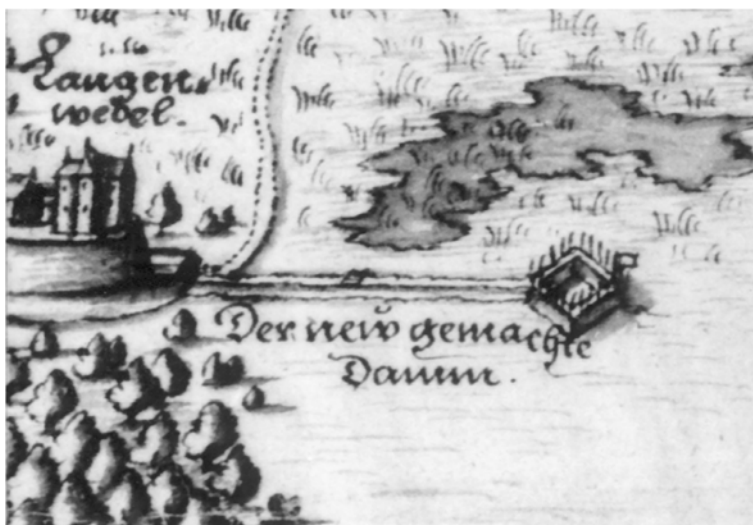 Langen
wedel.
Der new gemachte
Damm.